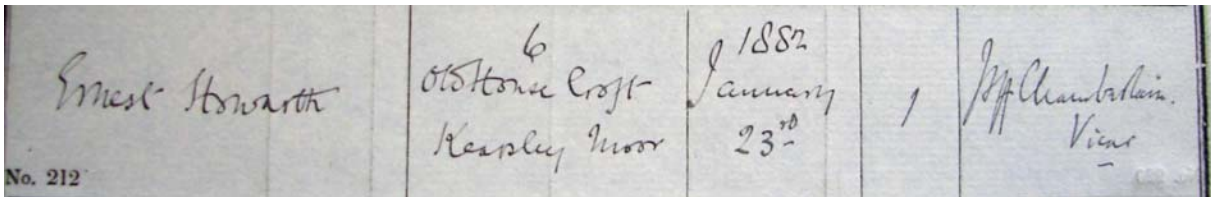 Ernest Howarth
6
Old House Croft
Kearsley Moor
1882
January
23rd
1
Chamberlain.
Vicar
No. 212